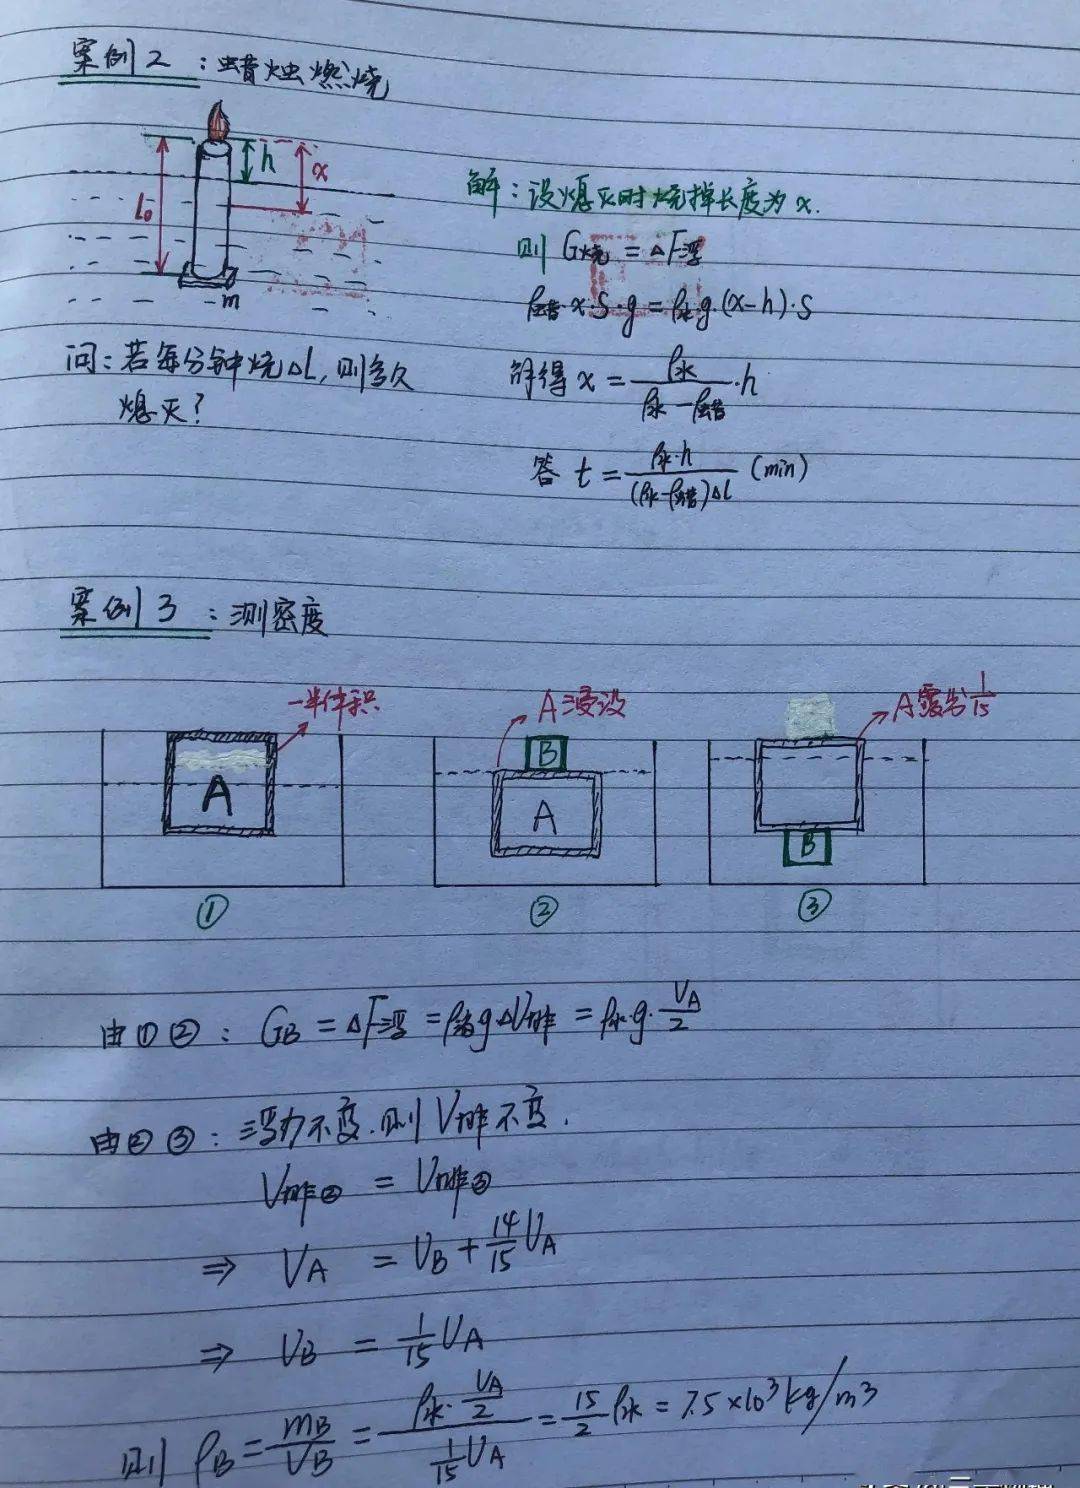 案例2：蜡烛燃烧
h
x
L₀
m
解：设熄灭时烧掉长度为x.
则 G烧 = ΔF浮
ρ蜡·x·S·g = ρ水g·(x-h)·S
问：若每分钟烧ΔL，则多久
熄灭？
解得 x = ρ水/(ρ水-ρ蜡)·h
答 t = ρ水·h/((ρ水-ρ蜡)ΔL) (min)
案例3：测密度
一半体积
A浸没
A露出1/15
A
B
A
B
① ② ③
由①②：GB = ΔF浮 = ρ液gΔV排 = ρ水·g·VA/2
由②③：浮力不变.则V排不变.
V排② = V排③
⇒ VA = VB + 14/15 VA
⇒ VB = 1/15 VA
则 ρB = mB/VB = (ρ水·VA/2)/(1/15 VA) = 15/2 ρ水 = 7.5×10³kg/m³